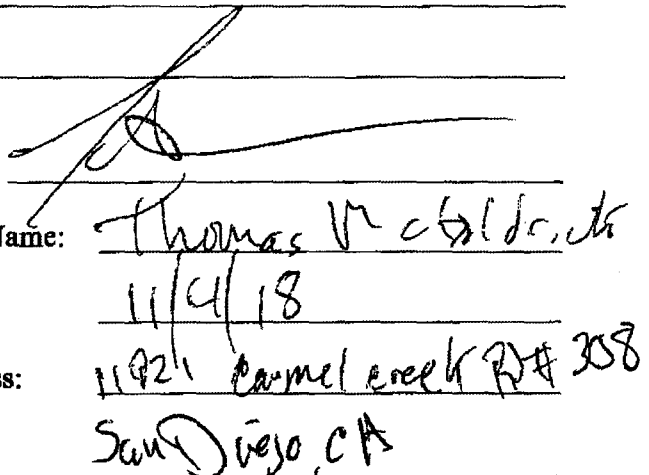 Name: Thomas V
11/9/18
ss: 11921 Carmel creek Rd # 308
San Diego, CA